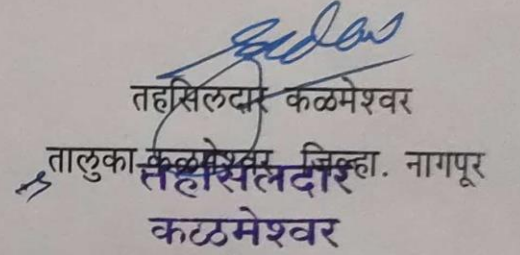 तहसिलदार कळमेश्वर
तालुका कळमेश्वर जिल्हा. नागपूर
तहसिलदार
कळमेश्वर